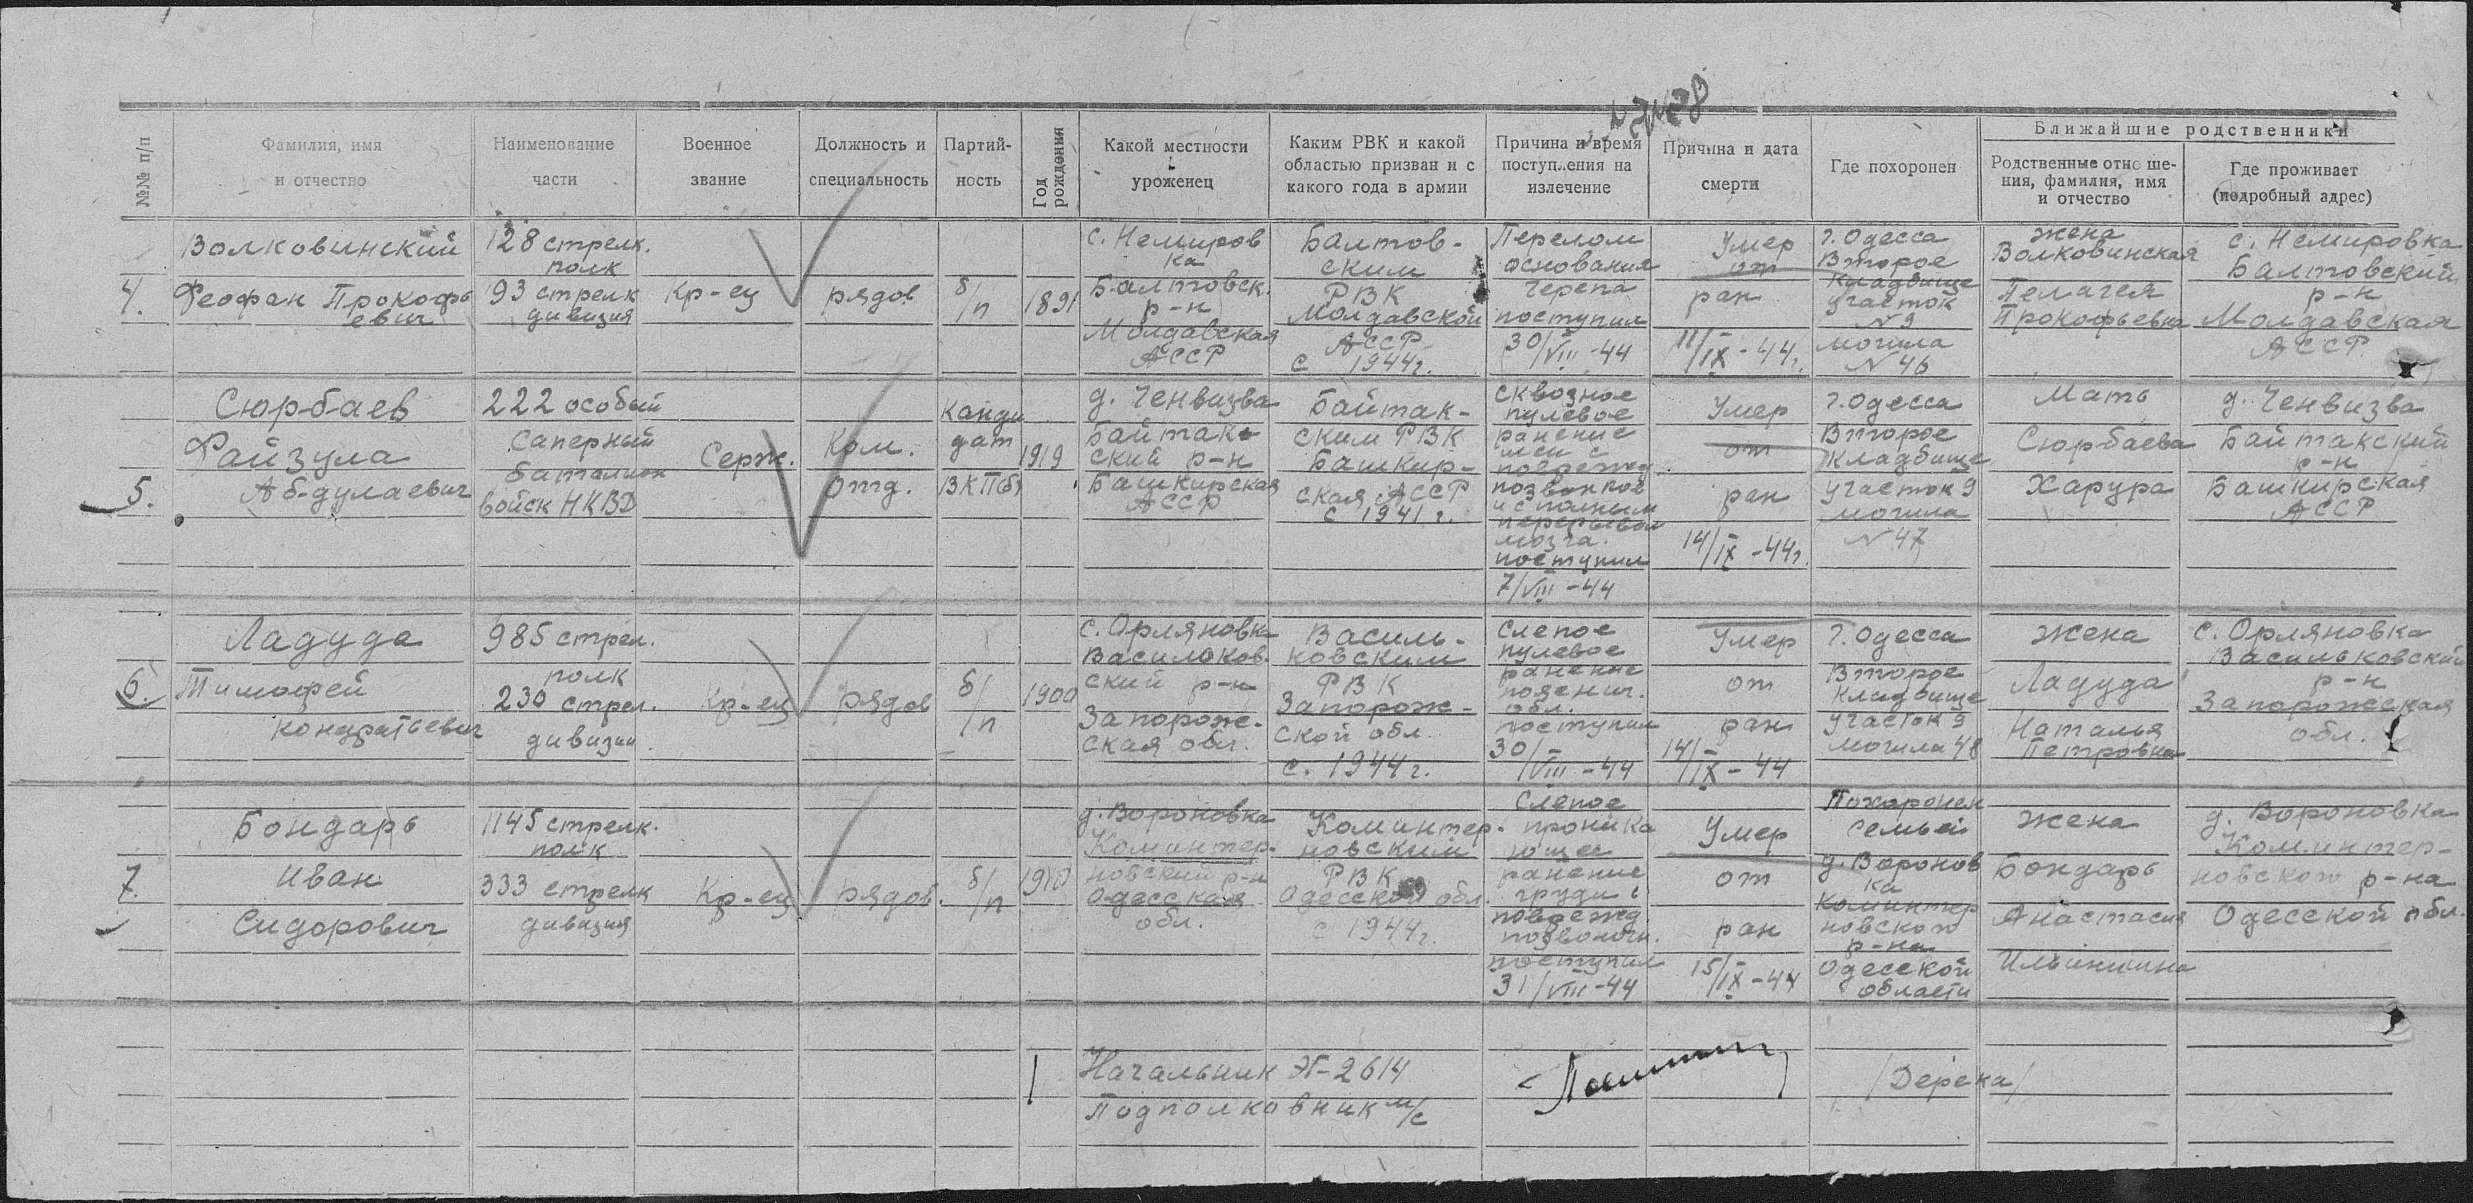 №№ п/п
Фамилия, имя
и отчество
Наименование
части
Военное
звание
Должность и
специальность
Партий-
ность
Год
рождения
Какой местности
уроженец
Каким РВК и какой
областью призван и с
какого года в армии
Причина и время
поступления на
излечение
Причина и дата
смерти
Где похоронен
Ближайшие родственники
Родственные отноше-
ния, фамилия, имя
и отчество
Где проживает
(подробный адрес)
4.
Волковинский
Феофан Прокофь
евич
128 стрелк.
полк
93 стрелк
дивизия
Кр-ец
рядов
б/п
1891
с. Немиров
ка
Балтовск.
р-н
Молдавская
АССР
Балтов-
ским
РВК
Молдавской
АССР
с 1944г.
Перелом
основания
черепа
поступил
30/VIII-44
Умер
от
ран
11/IX-44г.
г. Одесса
Второе
кладбище
участок
N 9
могила
N 46
жена
Волковинская
Пелагея
Прокофьевна
с. Немировка
Балтовский
р-н
Молдавская
АССР
5.
Сюрбаев
Файзула
Абдулаевич
222 особый
саперный
баталион
войск НКВД
Серж.
Ком.
отд.
Канди
дат
ВКП(б)
1919
д. Ченвизва
Байтак-
ский р-н
Башкирская
АССР
Байтак-
ским РВК
Башкир-
ская АССР
с 1941 г.
сквозное
пулевое
ранение
шеи с
поврежд.
позвонков
и с полным
перерывом
мозга.
поступил
7/VIII-44
Умер
от
ран
14/IX-44г.
г. Одесса
Второе
кладбище
участок 9
могила
N 47
Мать
Сюрбаева
Харура
д. Ченвизва
Байтакский
р-н
Башкирская
АССР
6.
Ладуда
Тимофей
Кондратьевич
985 стрел.
полк
230 стрел.
дивизии.
Кр-ец
рядов
б/п
1900
с. Орляновка
Васильков-
ский р-н
Запорож-
ская обл.
Василь-
ковским
РВК
Запорож-
ской обл.
с. 1944г.
слепое
пулевое
ранение
пояснич.
обл.
поступил
30/VIII-44
Умер
от
ран
14/IX-44
г. Одесса
Второе
кладбище
участок 9
могила 48
жена
Ладуда
Наталья
Петровна
с. Орляновка
Васильковский
р-н
Запорожская
обл.
7.
Бондарь
Иван
Сидорович
1145 стрелк.
полк
333 стрелк
дивизия
Кр-ец
рядов.
б/п
д. Вороновка
Коминтер-
новский р-н
Одесская
обл.
Коминтер-
новским
РВК
Одесской обл.
с 1944г.
Слепое
проника
ющее
ранение
груди с
поврежд.
позвоночн.
поступил
31/VIII-44
Умер
от
ран
15/IX-44
Похоронен
семьей
д. Воронов
ка
Коминтер
новского
р-на
Одесской
области
жена
Бондарь
Анастасия
Ильинична
д. Вороновка
Коминтер-
новского р-на
Одесской обл.
Начальник ЭГ-2614
Подполковник м/с
/Дерека/